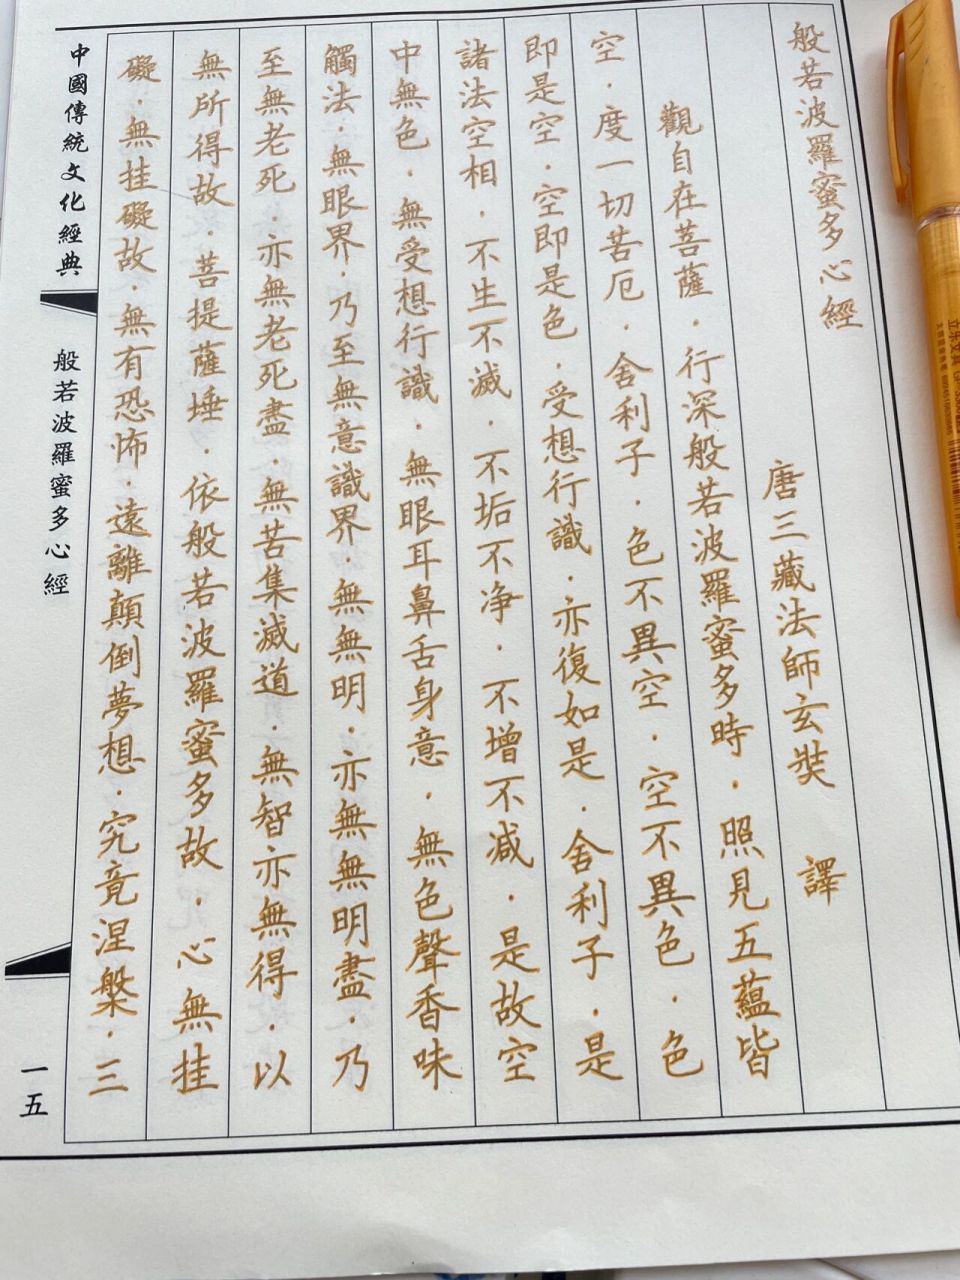 般若波羅蜜多心經
唐三藏法師玄奘 譯
觀自在菩薩．行深般若波羅蜜多時．照見五蘊皆
空．度一切苦厄．舍利子．色不異空．空不異色．色
即是空．空即是色．受想行識．亦復如是．舍利子．是
諸法空相．不生不滅．不垢不净．不增不减．是故空
中無色．無受想行識．無眼耳鼻舌身意．無色聲香味
觸法．無眼界．乃至無意識界．無無明．亦無無明盡．乃
至無老死．亦無老死盡．無苦集滅道．無智亦無得．以
無所得故．菩提薩埵．依般若波羅蜜多故．心無挂
礙．無挂礙故．無有恐怖．遠離顛倒夢想．究竟涅槃．三
中國傳統文化經典
般若波羅蜜多心經
一五